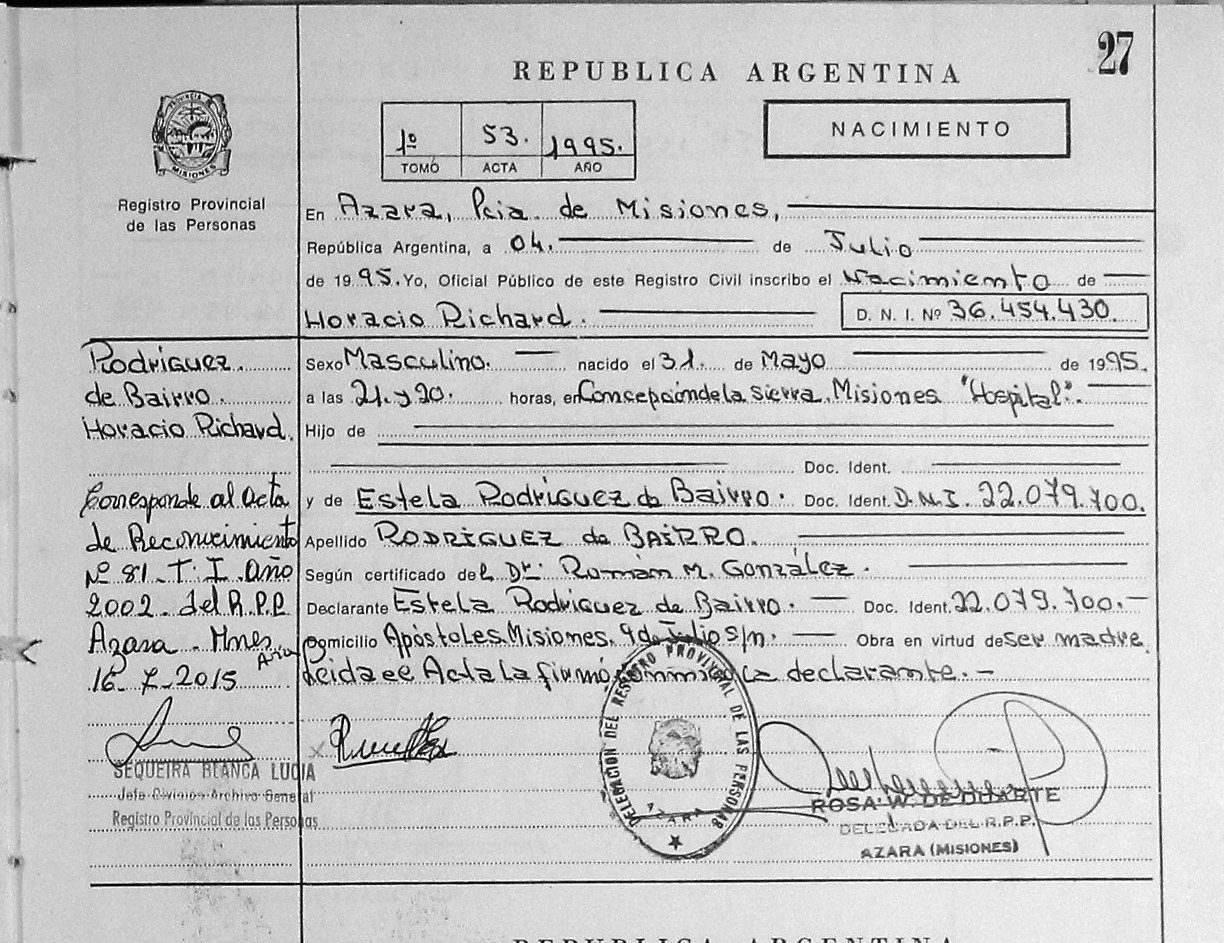 27
REPUBLICA ARGENTINA
PROVINCIA
MISIONES
Registro Provincial
de las Personas
1º 53. 1995.
TOMÓ ACTA AÑO
NACIMIENTO
En Azara, Pcia. de Misiones,
República Argentina, a 04. de Julio
de 1995. Yo, Oficial Público de este Registro Civil inscribo el Nacimiento de
Horacio Richard.
D. N. I. Nº 36.454.430.
Rodríguez
de Bairro.
Horacio Richard.
Sexo Masculino. nacido el 31. de Mayo de 1995.
a las 21. y 20. horas, en Concepción de la Sierra, Misiones "Hospital".
Hijo de
Doc. Ident.
y de Estela Rodríguez de Bairro. Doc. Ident. D.N.I. 22.079.700.
Apellido RODRÍGUEZ de BAIRRO.
Según certificado del Dr. Román M. González.
Declarante Estela Rodríguez de Bairro. Doc. Ident. 22.079.700.
Domicilio Apóstoles, Misiones, 9 de Julio s/n. Obra en virtud de ser madre
Leída el Acta La firmó conmigo La declarante.
Corresponde al Acta
de Reconocimiento
Nº 81 - T. I. Año
2002 - del R.P.P.
Azara - Mnes
16-7-2015
SEQUEIRA BLANCA LUCIA
Jefe División Archivo General
Registro Provincial de las Personas
DELEGACION DEL REGISTRO PROVINCIAL DE LAS PERSONAS
AZARA
ROSA W. DE DUARTE
DELEGADA DEL R.P.P.
AZARA (MISIONES)
REPUBLICA ARGENTINA